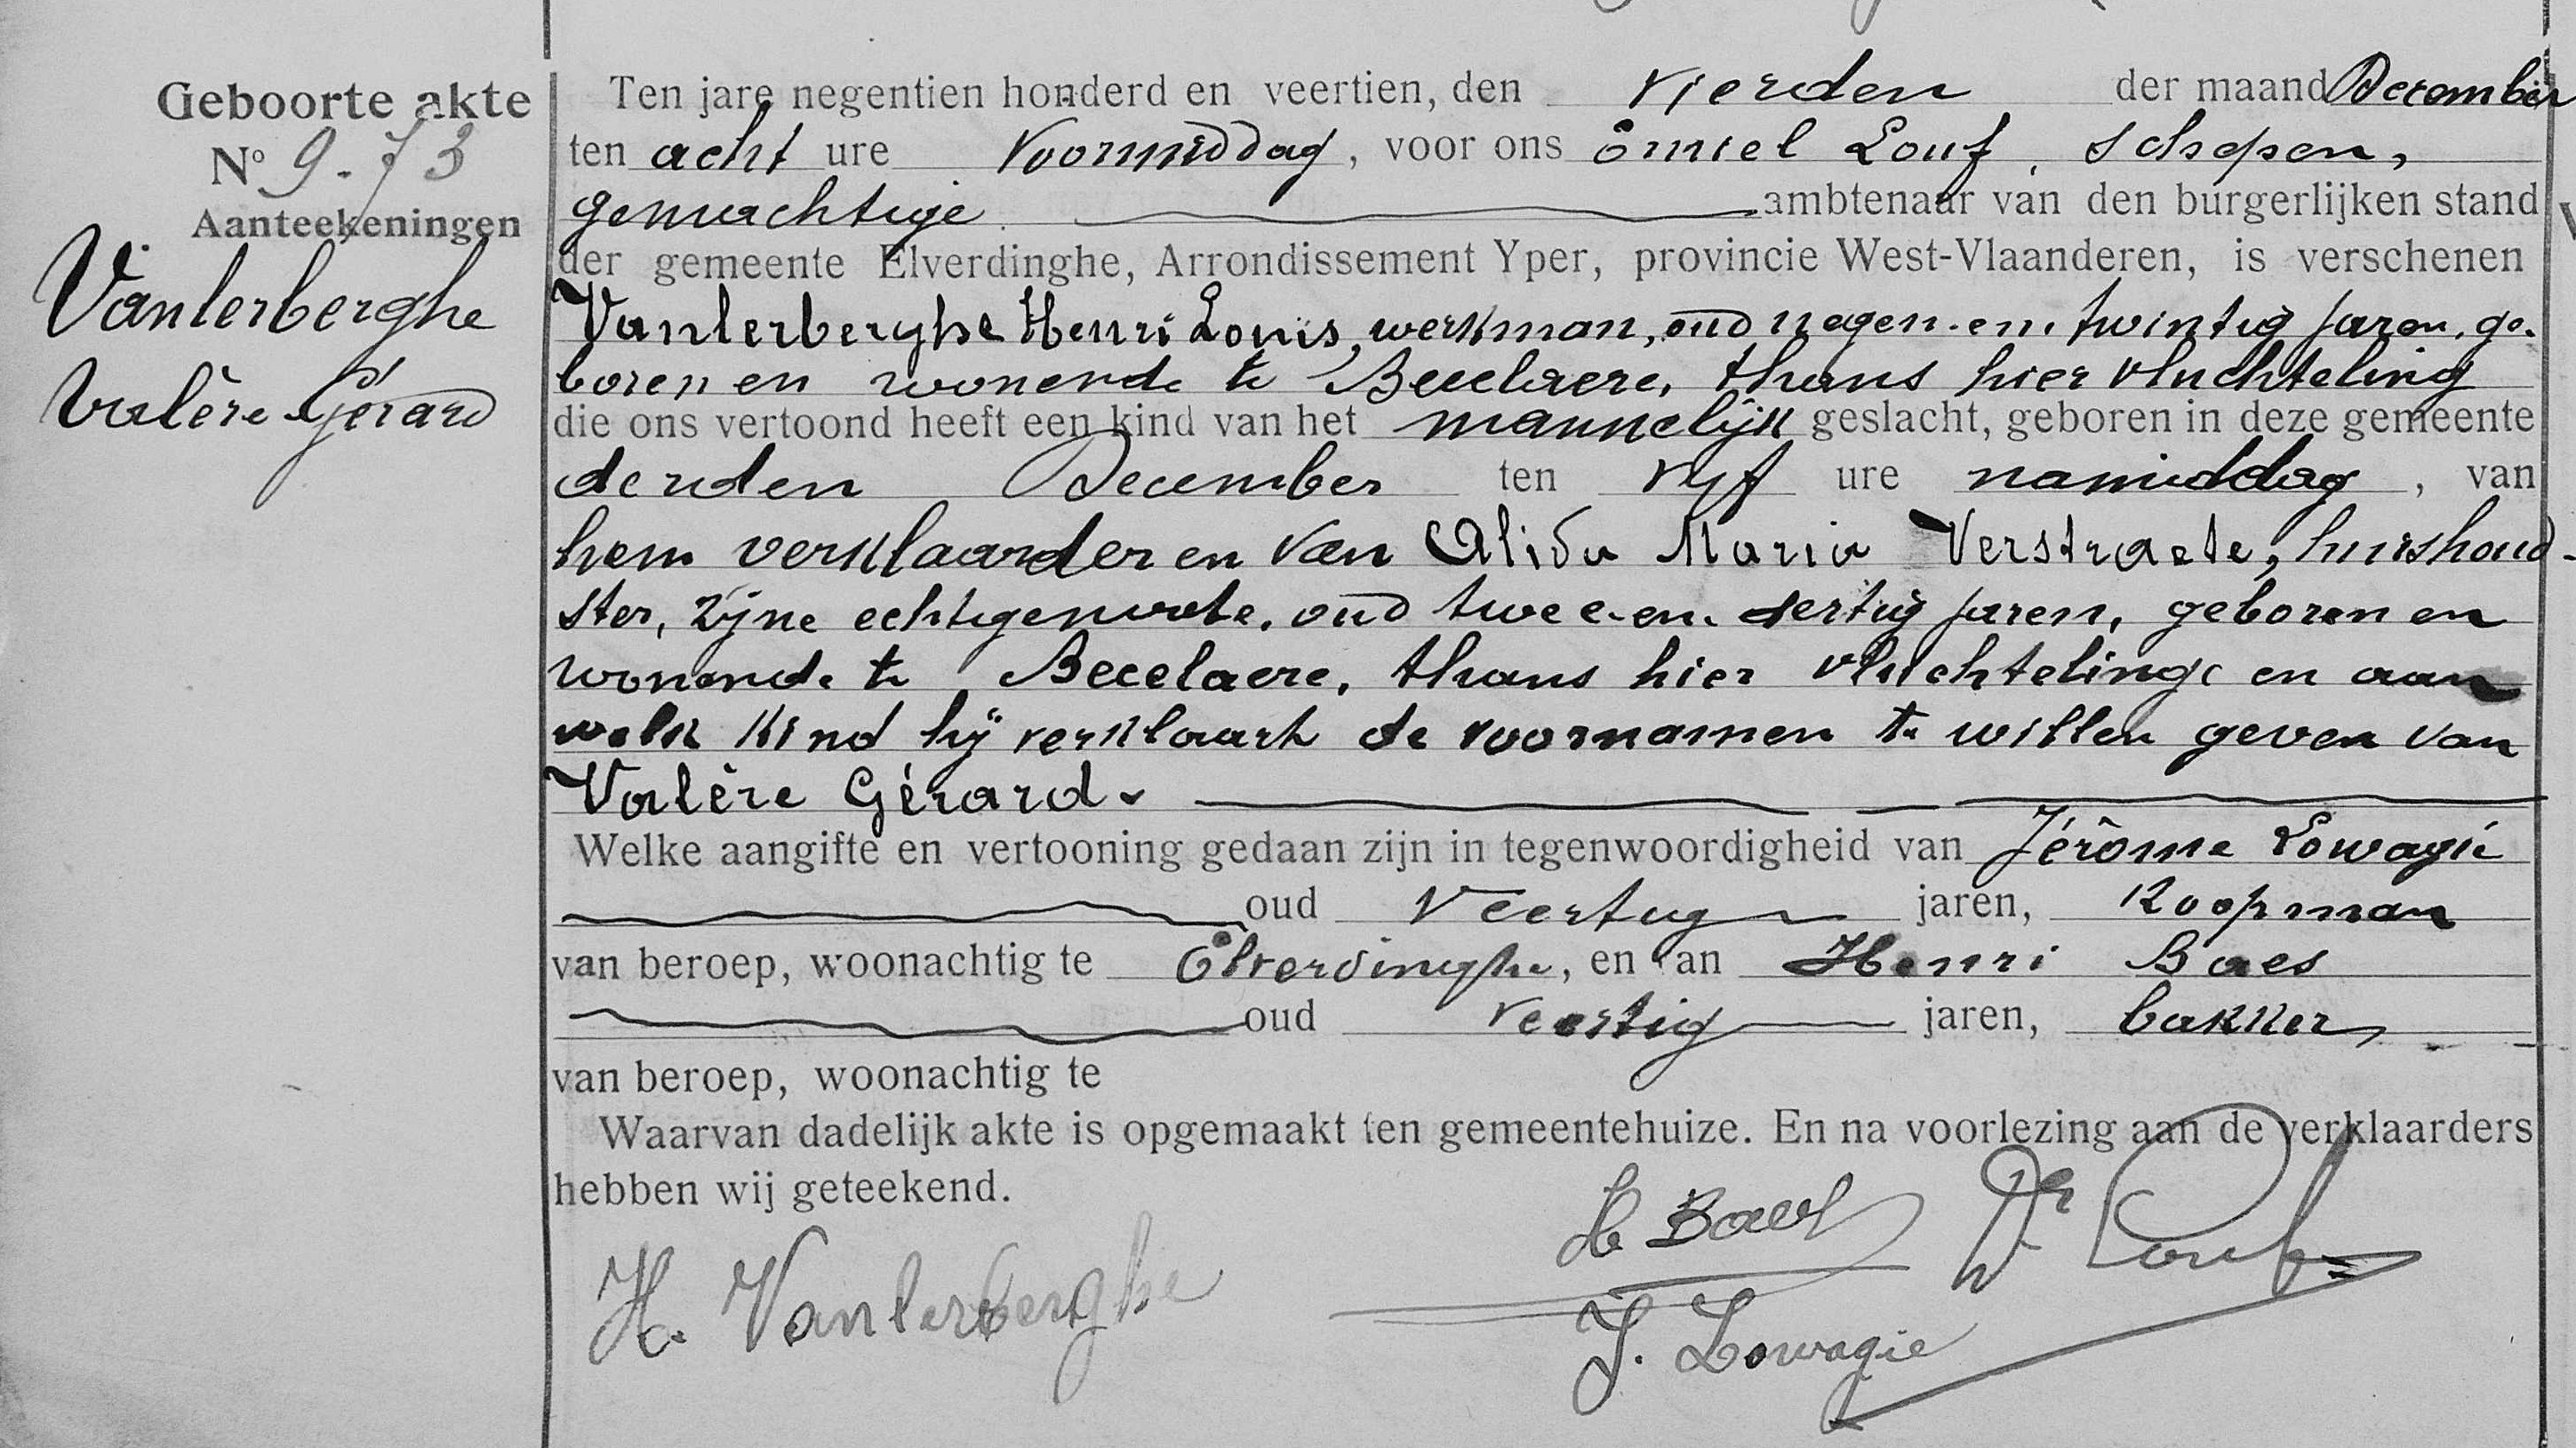 Geboorte akte
N° 9.73
Aanteekeningen
Vanlerberghe
Valère Gérard
Ten jare negentien honderd en veertien, den vierden der maand December
ten acht ure voormiddag, voor ons Emiel Louf, schepen,
gemachtigd ambtenaar van den burgerlijken stand
der gemeente Elverdinghe, Arrondissement Yper, provincie West-Vlaanderen, is verschenen
Vanlerberghe Henri Louis, werkman, oud negen-en-twintig jaren, ge-
boren en wonende te Becelaere, thans hier vluchteling
die ons vertoond heeft een kind van het mannelijk geslacht, geboren in deze gemeente
derden December ten vijf ure namiddag, van
hem verklaarder en van Alida Maria Verstraete, huishoud-
ster, zijne echtgenoote, oud twee-en-dertig jaren, geboren en
wonende te Becelaere, thans hier vluchtelinge en aan
welk kind hij verklaart de voornamen te willen geven van
Valère Gérard.
Welke aangifte en vertooning gedaan zijn in tegenwoordigheid van Jérôme Lowagie
oud veertig jaren, koopman
van beroep, woonachtig te Elverdinghe, en van Henri Baes
oud veertig jaren, bakker,
van beroep, woonachtig te
Waarvan dadelijk akte is opgemaakt ten gemeentehuize. En na voorlezing aan de verklaarders
hebben wij geteekend.
H Baes Dr Louf
H. Vanlerberghe
J. Lowagie